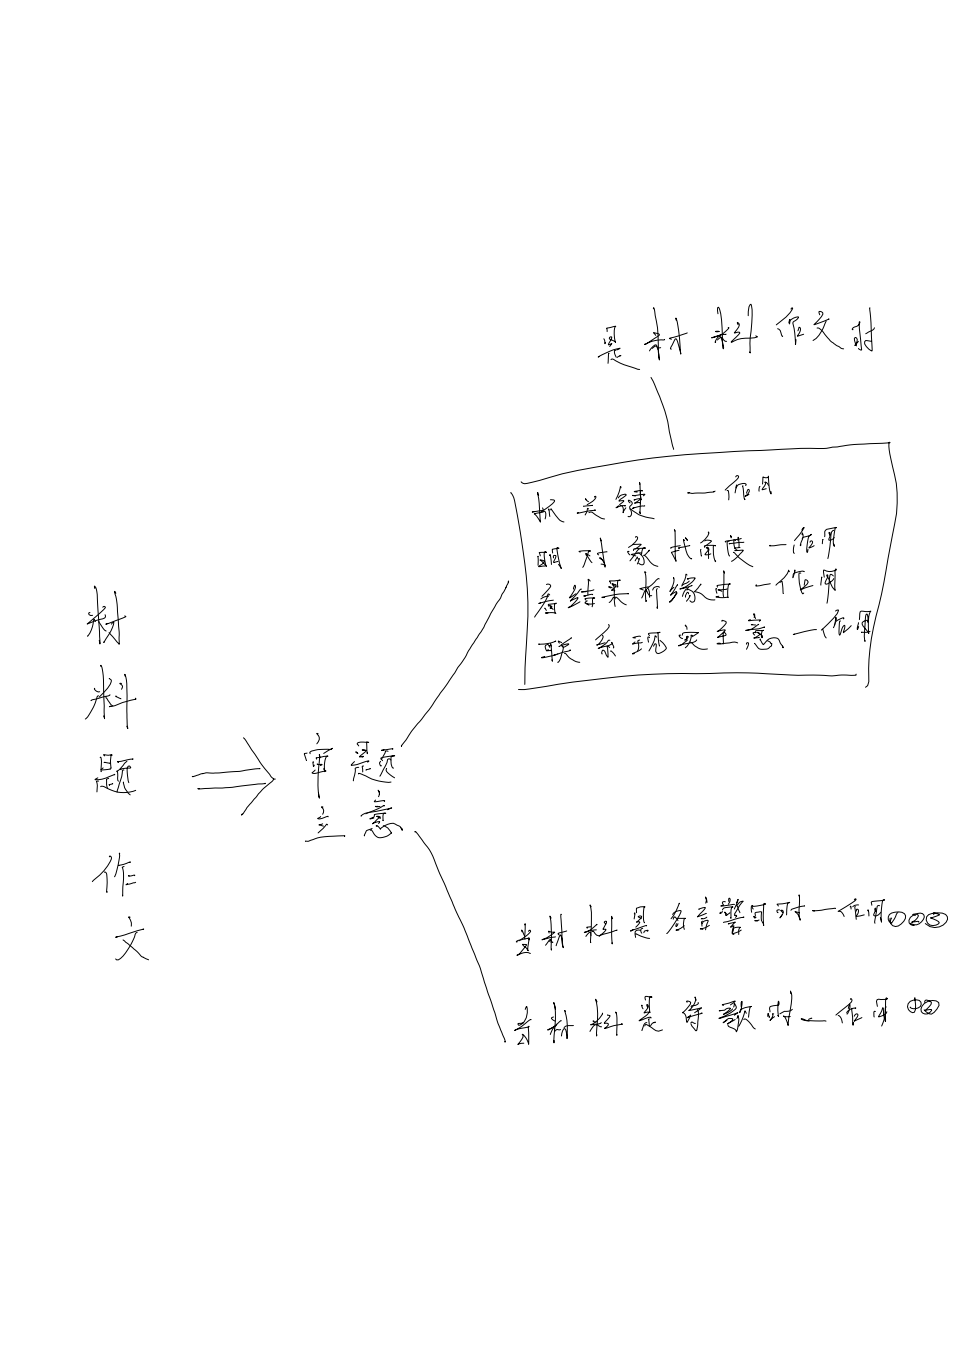 材料题作文
审题
立意
是材料作文时
抓关键 一作用
明对象找角度一作用
看结果析缘由一作用
联系现实主意一作用
当材料是名言警句时一作用①②③
当材料是诗歌时一作用①②